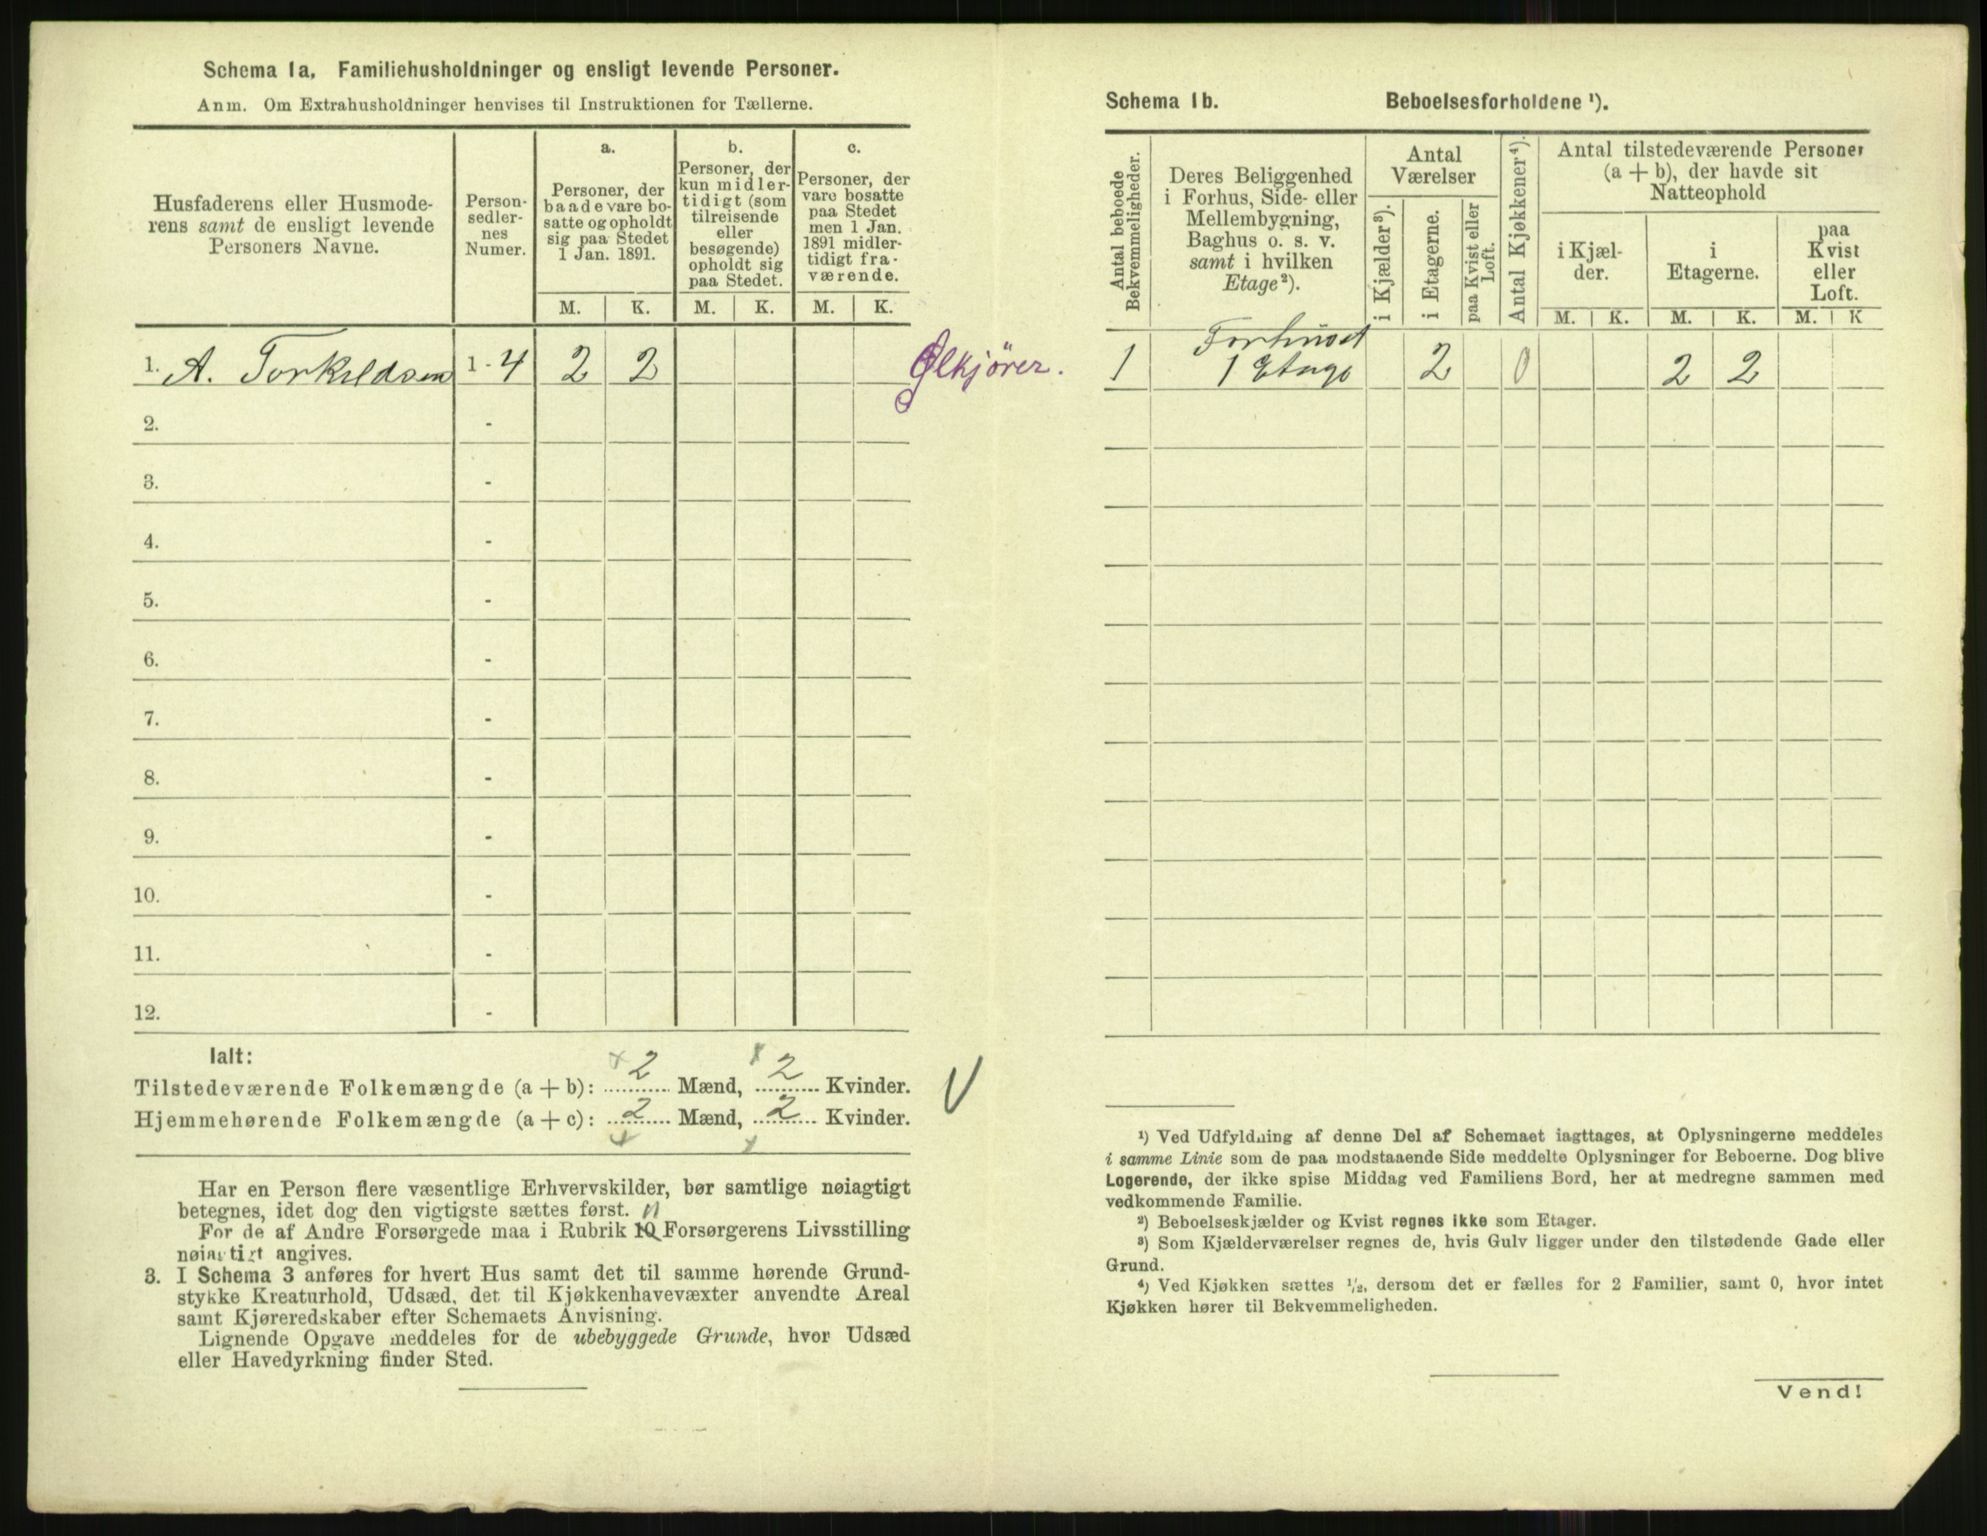 Schema 1a. Familiehusholdninger og ensligt levende Personer.
Anm. Om Extrahusholdninger henvises til Instruktionen for Tællerne.
Husfaderens eller Husmode-
rens samt de ensligt levende
Personers Navne.
Person-
sedler-
nes
Numer.
a.
Personer, der
baade vare bo-
satte og opholdt
sig paa Stedet
1 Jan. 1891.
b.
Personer, der
kun midler-
tidigt (som
tilreisende
eller
besøgende)
opholdt sig
paa Stedet.
c.
Personer, der
vare bosatte
paa Stedet
men 1 Jan.
1891 midler-
tidigt fra-
værende.
M. K. M. K. M. K.
1. A. Torkildsen 1 - 4 2 2 Ølkjører.
2. -
3. -
4. -
5. -
6. -
7. -
8. -
9. -
10. -
11. -
12. -
Ialt:
Tilstedeværende Folkemængde (a + b): 2 Mænd, 2 Kvinder.
Hjemmehørende Folkemængde (a + c): 2 Mænd, 2 Kvinder.
Har en Person flere væsentlige Erhvervskilder, bør samtlige nøiagtigt
betegnes, idet dog den vigtigste sættes først. 11
For de af Andre Forsørgede maa i Rubrik 10 Forsørgerens Livsstilling
nøiagtigt angives.
3. I Schema 3 anføres for hvert Hus samt det til samme hørende Grund-
stykke Kreaturhold, Udsæd, det til Kjøkkenhavevæxter anvendte Areal
samt Kjøreredskaber efter Schemaets Anvisning.
Lignende Opgave meddeles for de ubebyggede Grunde, hvor Udsæd
eller Havedyrkning finder Sted.
Schema 1b. Beboelsesforholdene ¹).
Antal beboede
Bekvemmeligheder.
Deres Beliggenhed
i Forhus, Side- eller
Mellembygning,
Baghus o. s. v.
samt i hvilken
Etage²).
Antal
Værelser
i Kjælder³).
i Etagerne.
paa Kvist eller
Loft.
Antal Kjøkkener⁴).
Antal tilstedeværende Personer
(a + b), der havde sit
Natteophold
i Kjæl-
der.
i
Etagerne.
paa
Kvist
eller
Loft.
M. K. M. K. M. K
Forhuset
1 1 Etage 2 0 2 2
¹) Ved Udfyldning af denne Del af Schemaet iagttages, at Oplysningerne meddeles
i samme Linie som de paa modstaaende Side meddelte Oplysninger for Beboerne. Dog blive
Logerende, der ikke spise Middag ved Familiens Bord, her at medregne sammen med
vedkommende Familie.
²) Beboelseskjælder og Kvist regnes ikke som Etager.
³) Som Kjælderværelser regnes de, hvis Gulv ligger under den tilstødende Gade eller
Grund.
⁴) Ved Kjøkken sættes ½, dersom det er fælles for 2 Familier, samt 0, hvor intet
Kjøkken hører til Bekvemmeligheden.
Vend!